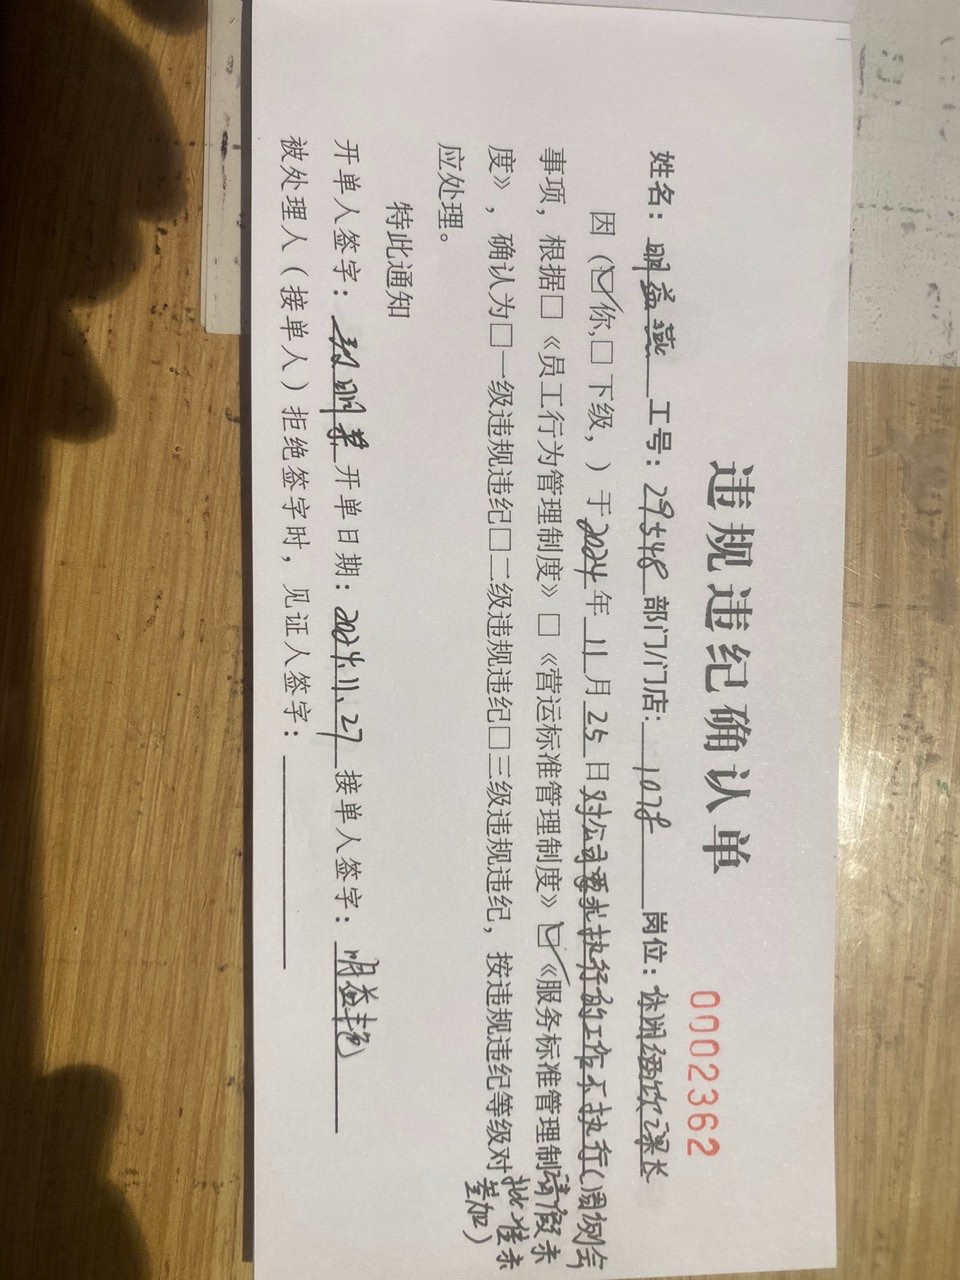 违规违纪确认单
0002362
姓名：明益 工号：29548 部门/门店：1078 岗位：休闲烟饮课长
因（☑你，□下级，）于2024年11月25日对公司要求执行的工作不执行（周例会请假未批准未参加）
事项，根据□《员工行为管理制度》□《营运标准管理制度》☑《服务标准管理制
度》，确认为□一级违规违纪□二级违规违纪□三级违规违纪，按违规违纪等级对
应处理。
特此通知
开单人签字： 开单日期：2024.11.27 接单人签字：明益艳
被处理人（接单人）拒绝签字时，见证人签字：